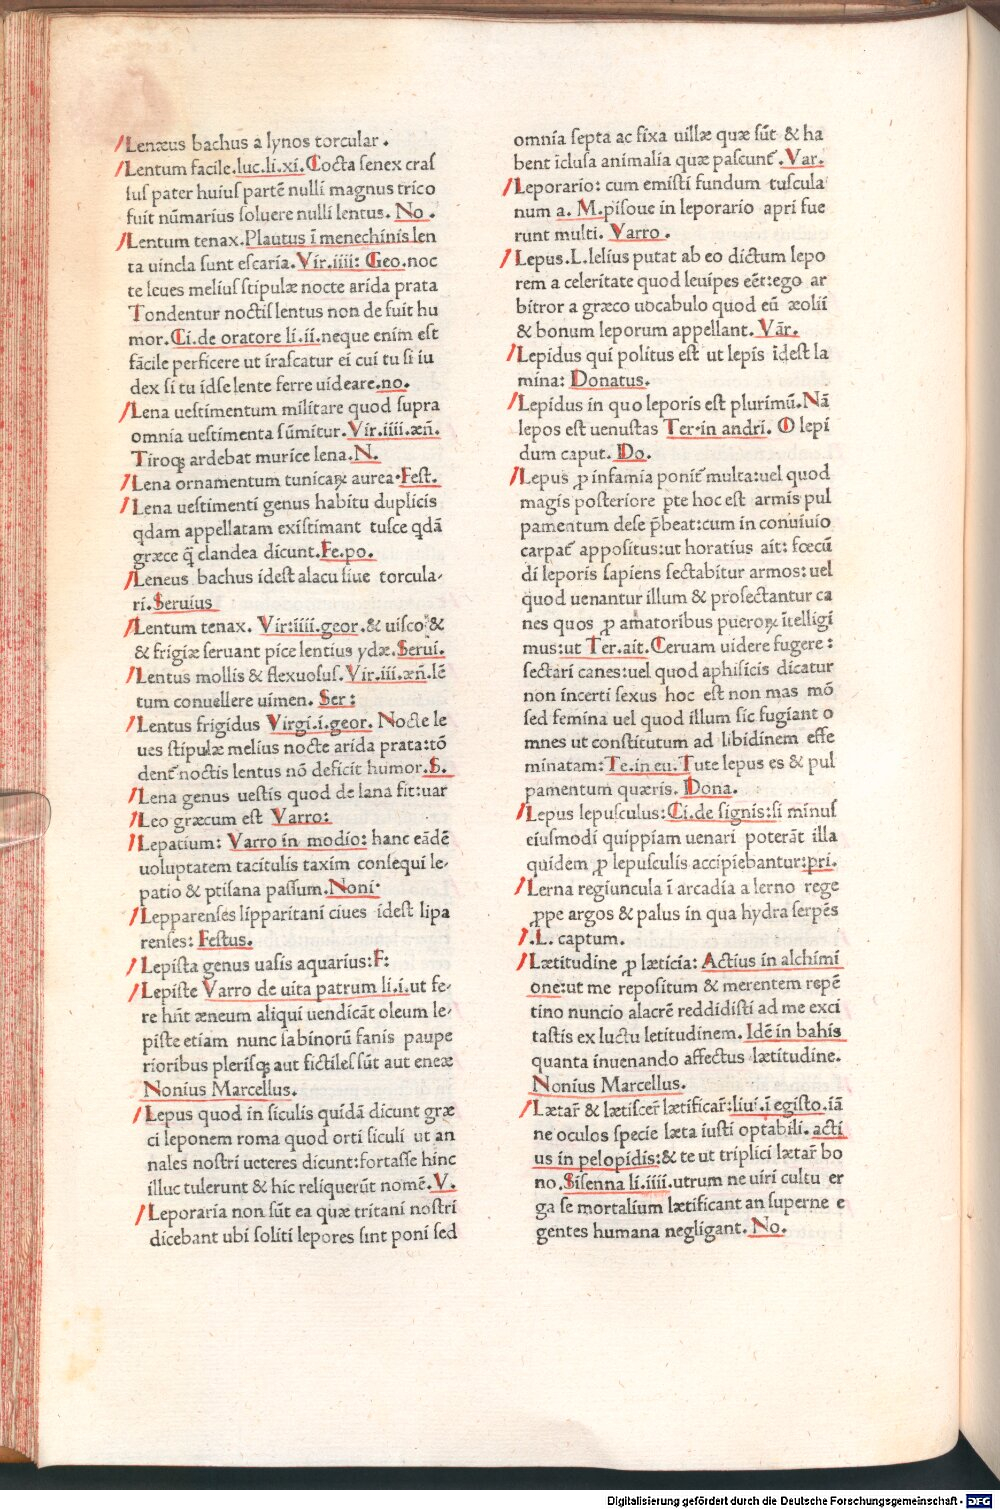 Lenæus bachus a lynos torcular.
Lentum facile.luc.li.xi.Cocta senex cras
sus pater huius partẽ nulli magnus trico
fuit nũmarius soluere nulli lentus. No.
Lentum tenax.Plautus ĩ menechinis len
ta uincla sunt escaria.Vir.iiii: Geo.noc
te leues melius stipulæ nocte arida prata
Tondentur noctis lentus non de fuit hu
mor.Ci.de oratore li.ii.neque enim est
facile perficere ut irascatur ei cui tu si iu
dex si tu idse lente ferre uideare.no.
Lena uestimentum militare quod supra
omnia uestimenta sũmitur.Vir.iiii.æñ.
Tiroqꝫ ardebat murice lena.N.
Lena ornamentum tunicaꝝ aurea.Fest.
Lena uestimenti genus habitu duplicis
qdam appellatam existimant tusce qdã
græce q̃ clandea dicunt.Fe.po.
Leneus bachus idest alacu siue torcula-
ri.Seruius
Lentum tenax. Vir:iiii.geor.& uisco &
& frigiæ seruant pice lentius ydæ.Serui.
Lentus mollis & flexuosus.Vir.iii.æñ.lẽ
tum conuellere uimen. Ser:
Lentus frigidus Virgi.i.geor. Nocte le
ues stipulæ melius nocte arida prata:tõ
denť noctis lentus nõ deficit humor.S.
Lena genus uestis quod de lana fit:uar
Leo græcum est Varro:
Lepatium: Varro in modio: hanc eãdẽ
uoluptatem tacitulis taxim consequi le-
patio & ptisana passum.Noni.
Lepparenses lipparitani ciues idest lipa
renses: Festus.
Lepista genus uasis aquarius:F:
Lepiste Varro de uita patrum li.i.ut fe-
re hñt æneum aliqui uendicãt oleum le-
piste etiam nunc sabinorũ fanis paupe
rioribus plerisqꝫ aut fictiles sũt aut eneæ
Nonius Marcellus.
Lepus quod in siculis quidã dicunt græ
ci leponem roma quod orti siculi ut an
nales nostri ueteres dicunt:fortasse hinc
illuc tulerunt & hic reliquerũt nomẽ.V.
Leporaria non sũt ea quæ tritani nostri
dicebant ubi soliti lepores sint poni sed
omnia septa ac fixa uillæ quæ sũt & ha
bent ĩclusa animalia quæ pascunť.Var.
Leporario: cum emisti fundum tuscula
num a. M.pisoue in leporario apri fue
runt multi. Varro.
Lepus.L.lelius putat ab eo dictum lepo
rem a celeritate quod leuipes eẽt:ego ar
bitror a græco uocabulo quod eũ æolii
& bonum leporum appellant. Vãr.
Lepidus qui politus est ut lepis idest la
mina: Donatus.
Lepidus in quo leporis est plurimũ.Nã
lepos est uenustas Ter.in andri. O lepi
dum caput. Do.
Lepus ꝓ infamia poniť multa:uel quod
magis posteriore ꝑte hoc est armis pul
pamentum dese p̃beat:cum in conuiuio
carpať appositus:ut horatius ait: fœcũ
di leporis sapiens sectabitur armos: uel
quod uenantur illum & prosectantur ca
nes quos ꝓ amatoribus pueroꝝ ĩtelligi
mus:ut Ter.ait.Ceruam uidere fugere:
sectari canes:uel quod aphisicis dicatur
non incerti sexus hoc est non mas mõ
sed femina uel quod illum sic fugiant o
mnes ut constitutum ad libidinem effe
minatam: Te.in eu.Tute lepus es & pul
pamentum quæris. Dona.
Lepus lepusculus:Ci.de signis:si minus
eiusmodi quippiam uenari poterãt illa
quidem ꝓ lepusculis accipiebantur:pri.
Lerna regiuncula ĩ arcadia a lerno rege
ꝓpe argos & palus in qua hydra serpẽs
.L. captum.
Lætitudine ꝓ læticia: Actius in alchimi
one:ut me repositum & merentem repẽ
tino nuncio alacrẽ reddidisti ad me exci
tastis ex luctu letitudinem. Idẽ in bahis
quanta inuenando affectus lætitudine.
Nonius Marcellus.
Lætař & lætisceř lætificař:liu'.ĩ egisto.iã
ne oculos specie læta iusti optabili. acti
us in pelopidis:& te ut triplici lætař bo
no.Sisenna li.iiii.utrum ne uiri cultu er
ga se mortalium lætificant an superne e
gentes humana negligant. No.
Digitalisierung gefördert durch die Deutsche Forschungsgemeinschaft - DFG